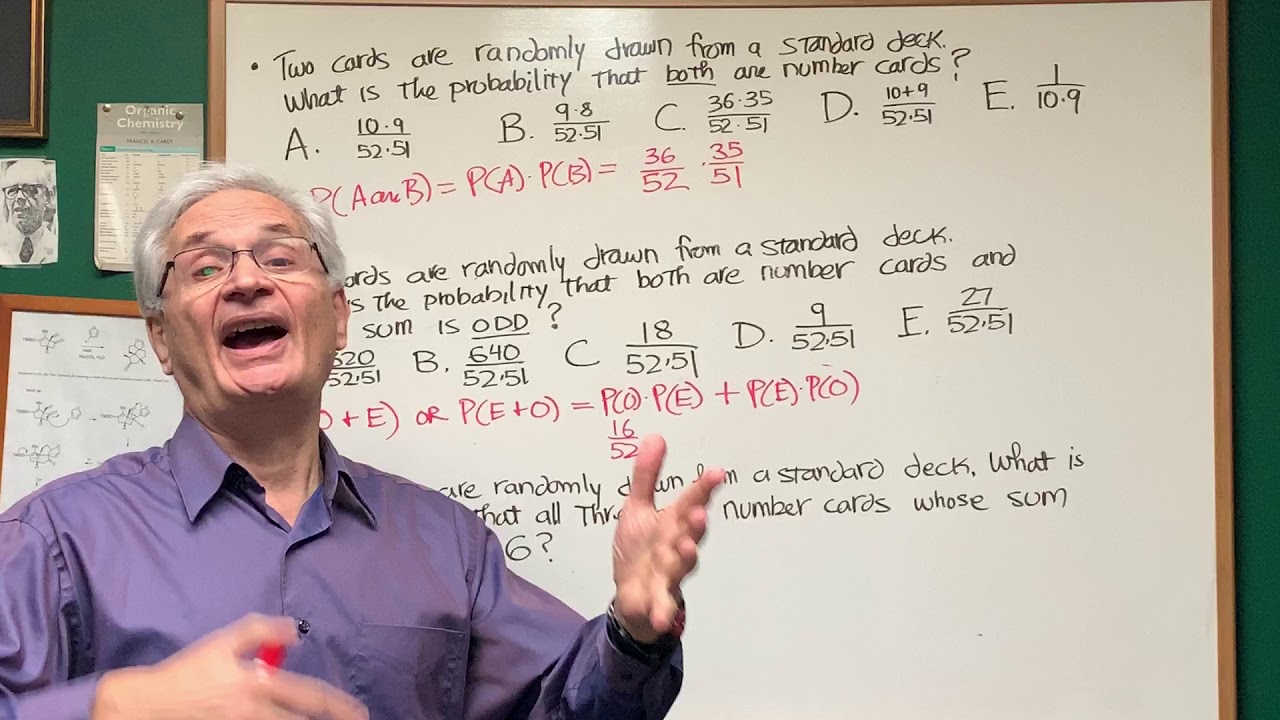 • Two cards are randomly drawn from a standard deck.
What is the probability that both are number cards?
A. 10·9/52·51 B. 9·8/52·51 C. 36·35/52·51 D. 10+9/52·51 E. 1/10·9
P(A and B) = P(A)·P(B) = 36/52 · 35/51
cards are randomly drawn from a standard deck.
is the probability that both are number cards and
sum is ODD?
320/52·51 B. 640/52·51 C 18/52·51 D. 9/52·51 E. 27/52·51
O + E) OR P(E+O) = P(O)·P(E) + P(E)·P(O)
16/52
are randomly drawn from a standard deck. What is
that all number cards whose sum
6?
Organic
Chemistry